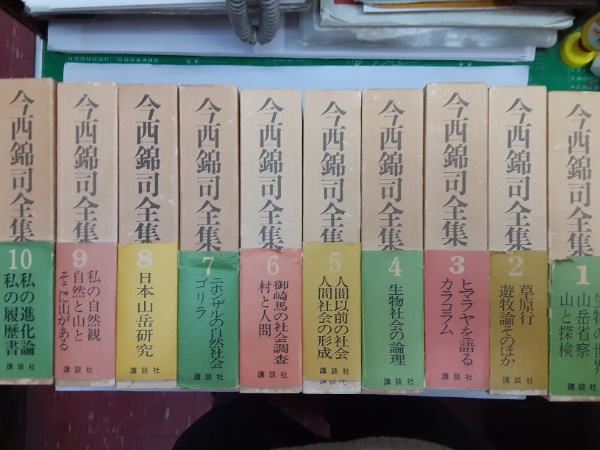 今西錦司全集
1
生物の世界
山岳省察
山と探検
講談社
今西錦司全集
2
草原行
遊牧論そのほか
講談社
今西錦司全集
3
ヒマラヤを語る
カラコラム
講談社
今西錦司全集
4
生物社会の論理
講談社
今西錦司全集
5
人間以前の社会
人間社会の形成
講談社
今西錦司全集
6
御崎馬の社会調査
村と人間
講談社
今西錦司全集
7
ニホンザルの自然社会
ゴリラ
講談社
今西錦司全集
8
日本山岳研究
講談社
今西錦司全集
9
私の自然観
自然と山と
そこに山がある
講談社
今西錦司全集
10
私の進化論
私の履歴書
講談社